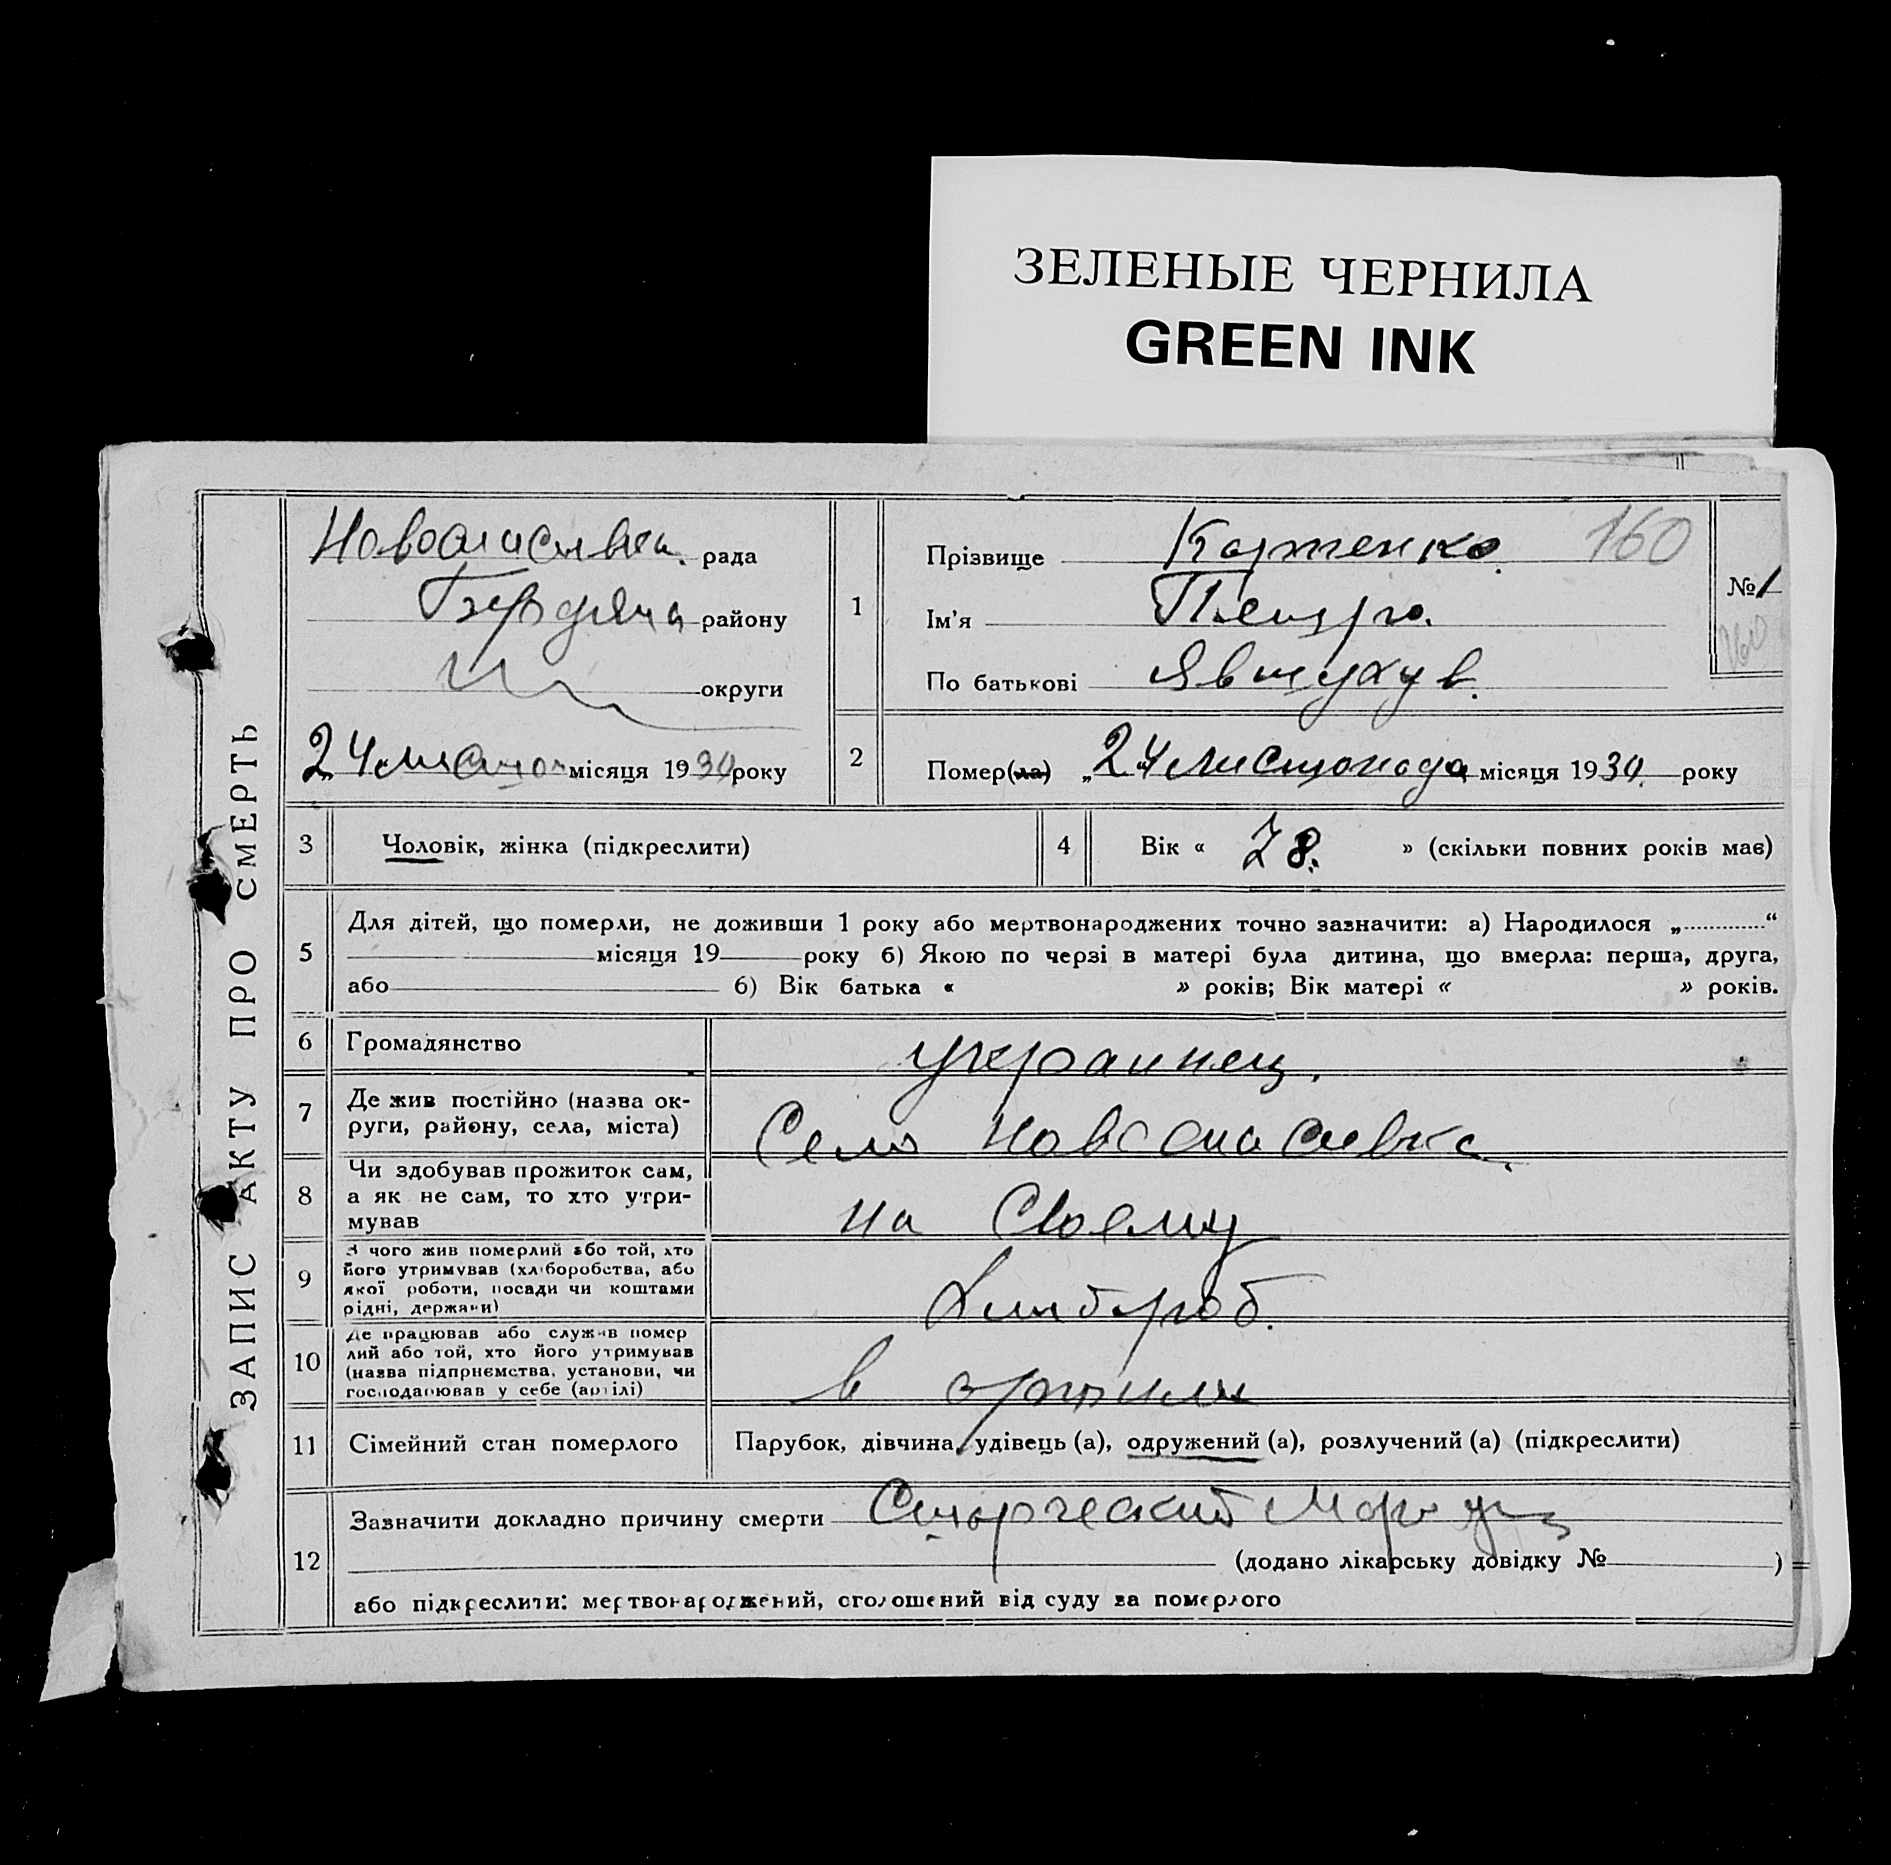 ЗЕЛЕНЫЕ ЧЕРНИЛА
GREEN INK
ЗАПИС АКТУ ПРО СМЕРТЬ
рада
району
округи
24 місяця 1930 року
1
Прізвище 160
Ім'я
По батькові
№ 1
160
2
Помер(ла) „24 листопада місяця 1930 року
3
Чоловік, жінка (підкреслити)
4
Вік « 78. » (скільки повних років має)
5
Для дітей, що померли, не доживши 1 року або мертвонароджених точно зазначити: а) Народилося „ “
місяця 19 року б) Якою по черзі в матері була дитина, що вмерла: перша, друга,
або б) Вік батька « » років; Вік матері « » років.
6
Громадянство
украинец.
7
Де жив постійно (назва ок-
руги, району, села, міста)
Село
8
Чи здобував прожиток сам,
а як не сам, то хто утри-
мував
на Своему
9
З чого жив померлий або той, хто
його утримував (хліборобства, або
якої роботи, посади чи коштами
рідні, держави)
Хлибороб.
10
Де працював або служив помер
лий або той, хто його утримував
(назва підприємства, установи, чи
господарював у себе (артілі)
в
11
Сімейний стан померлого
Парубок, дівчина, удівець (а), одружений (а), розлучений (а) (підкреслити)
12
Зазначити докладно причину смерти
(додано лікарську довідку № )
або підкреслити: мертвонароджений, оголошений від суду за померлого